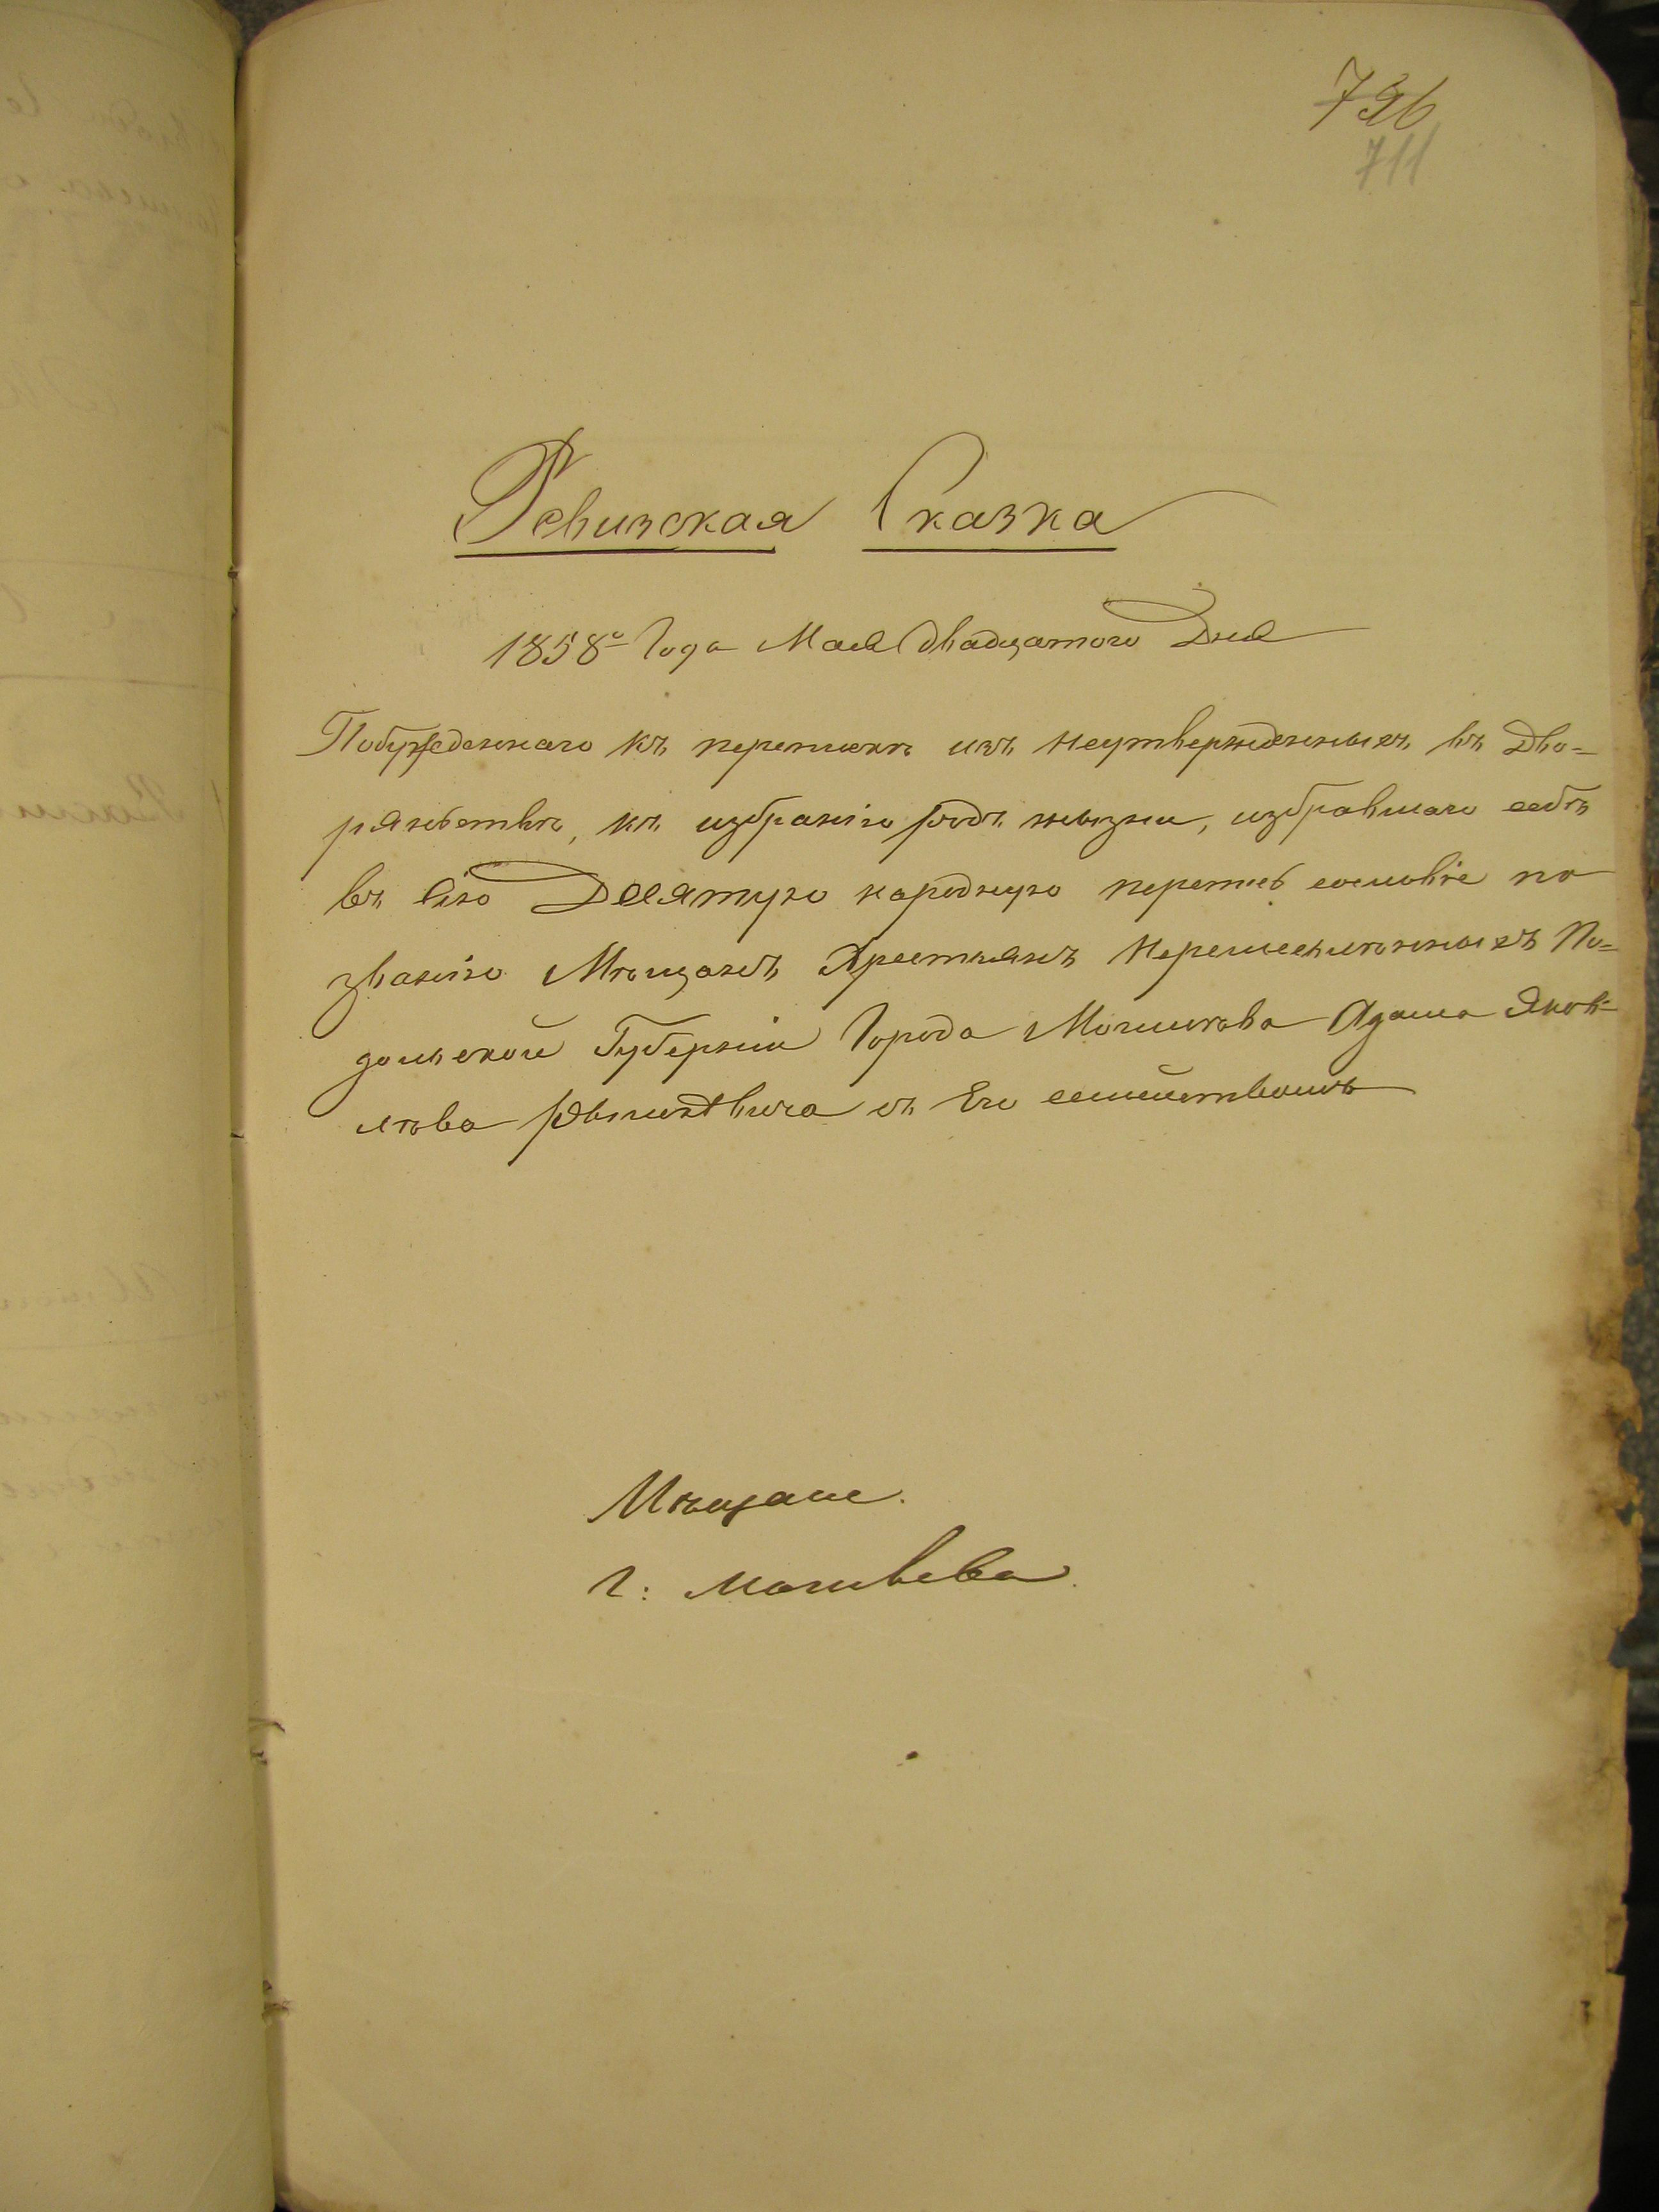 736
711
Ревизская Сказка
1858го Года Мая двадцатого Дня
Побужденнаго къ переписи изъ неутвержденныхъ въ Дво=
рянствѣ, къ избранію родъ жызни, избравшаго себѣ
въ сію Десятую народную перепись сословіе по
званію Мѣщанъ Христьянъ По=
дольской Губерніи Города Могилева Адама Яков=
лѣва съ Его семействомъ
Мѣщане.
г: Могилева.